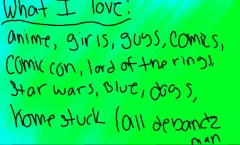 What I love:
anime, girls, guys, comics,
Comic con, lord of the rings,
Star wars, Blue, dogs,
homestuck (all de bandz
man